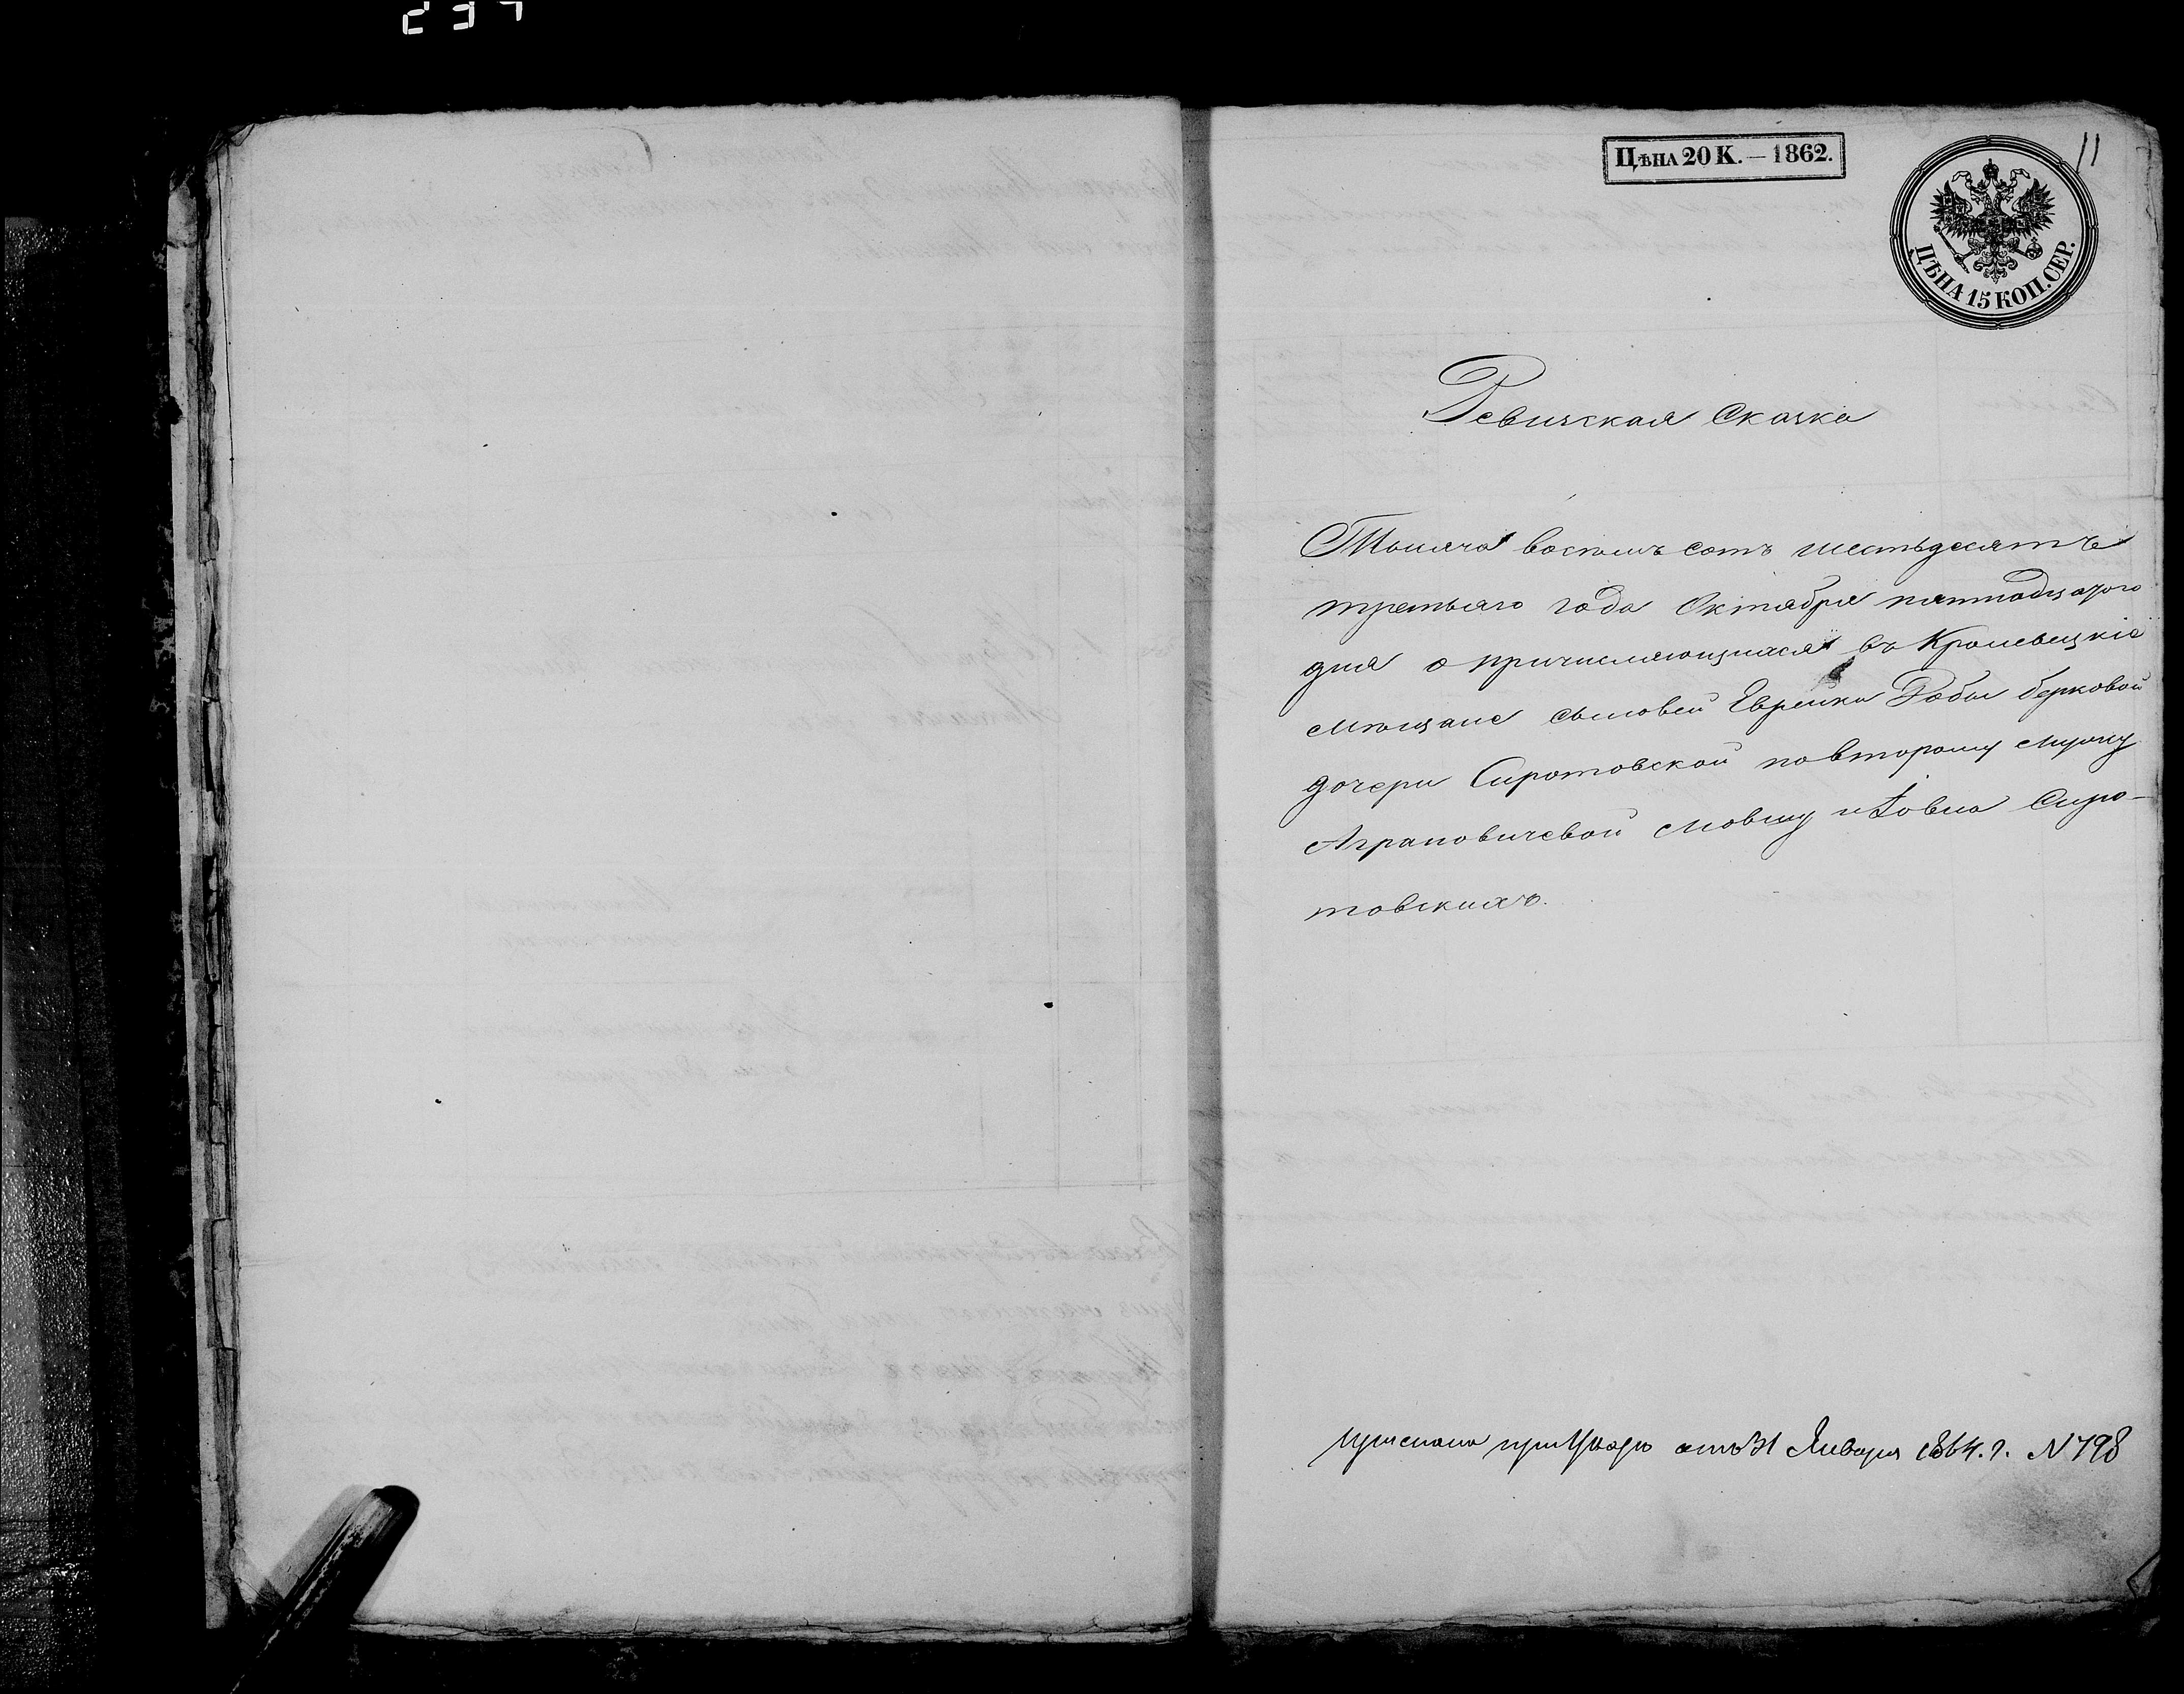 237
Цѣна 20 К. — 1862.
11
ЦѢНА 15 КОП. СЕР.
Ревизская Сказка
Тысяча восемь сотъ шестьдесятъ
третьяго года Октября пятнадцатого
дня о причисляющихся въ Кролевецкіе
мѣщане сыновей Еврейки Рабы берковой
дочери Сиротовской повторому мужу
Аграновичевой Мовшу и Іовна Сиро-
товскихъ.
при отъ 31 Января 1864. г. N 798